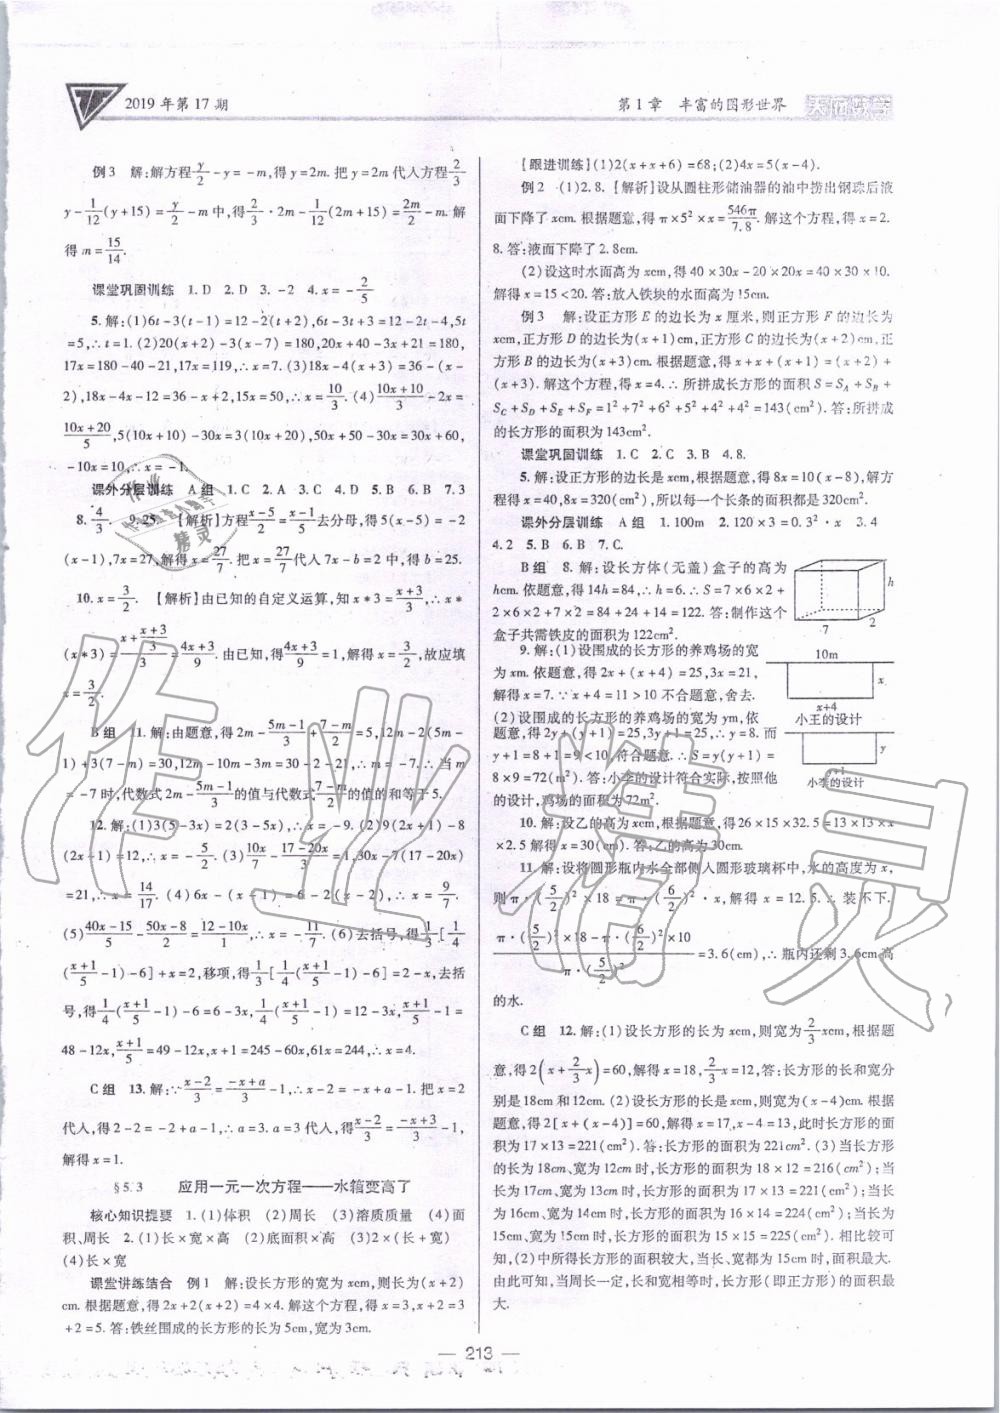 2019 年第 17 期
第 1 章 丰富的图形世界
例3 解:解方程y/2-y=-m,得y=2m. 把y=2m代人方程2/3
y-1/12(y+15)=y/2-m中,得2/3·2m-1/12(2m+15)=2m/2-m. 解
得m=15/14.
课堂巩固训练 1. D 2. D 3. -2 4. x=-2/5
5. 解:(1)6t-3(t-1)=12-2(t+2),6t-3t+3=12-2t-4,5t
=5,∴t=1. (2)20(x+2)-3(x-7)=180,20x+40-3x+21=180,
17x=180-40-21,17x=119,∴x=7. (3)18x-4(x+3)=36-(x-
2),18x-4x-12=36-x+2,15x=50,∴x=10/3. (4)(10x+10)/3-2x=
(10x+20)/5,5(10x+10)-30x=3(10x+20),50x+50-30x=30x+60,
-10x=10,∴x=-1.
课外分层训练 A组 1. C 2. A 3. C 4. D 5. B 6. B 7. 3
8. 4/3. 9. 25. 【解析】方程(x-5)/2=(x-1)/5去分母,得5(x-5)=-2
(x-1),7x=27,解得x=27/7. 把x=27/7代人7x-b=2中,得b=25.
10. x=3/2. 【解析】由已知的自定义运算,知x*3=(x+3)/3,∴x*
(x*3)=(x+(x+3)/3)/3=(4x+3)/9. 由已知,得(4x+3)/9=1,解得x=3/2,故应填
x=3/2.
B组 11. 解:由题意,得2m-(5m-1)/3+(7-m)/2=5,12m-2(5m-
1)+3(7-m)=30,12m-10m-3m=30-2-21,∴m=-7. ∴当m
=-7时,代数式2m-(5m-1)/3的值与代数式(7-m)/2的值的和等于5.
12. 解:(1)3(5-3x)=2(3-5x),∴x=-9. (2)9(2x+1)-8
(2x-1)=12,∴x=-5/2. (3)10x/7-(17-20x)/3=1,30x-7(17-20x)
=21,∴x=14/17. (4)6x-(x-1)=6-2(x-2),∴x=9/7.
(5)(40x-15)/5-(50x-8)/2=(12-10x)/1,∴x=-11/7. (6)去括号,得1/3[1/4
((x+1)/5-1)-6]+x=2,移项,得1/3[1/4((x+1)/5-1)-6]=2-x,去括
号,得1/4((x+1)/5-1)-6=6-3x,1/4((x+1)/5-1)=12-3x,(x+1)/5-1=
48-12x,(x+1)/5=49-12x,x+1=245-60x,61x=244,∴x=4.
C组 13. 解:∵(x-2)/3=(-x+a)/3-1,∴x-2=-x+a-1. 把x=2
代人,得2-2=-2+a-1,∴a=3. a=3代人,得(x-2)/3=(-x+3)/3-1,
解得x=1.
§5.3 应用一元一次方程——水箱变高了
核心知识提要 1. (1)体积 (2)周长 (3)溶质质量 (4)面
积、周长 2. (1)长×宽×高 (2)底面积×高 (3)2×(长+宽)
(4)长×宽
课堂讲练结合 例1 解:设长方形的宽为xcm,则长为(x+2)
cm. 根据题意,得2x+2(x+2)=4×4. 解这个方程,得x=3,x+2=3
+2=5. 答:铁丝围成的长方形的长为5cm,宽为3cm.
【跟进训练】(1)2(x+x+6)=68;(2)4x=5(x-4).
例2 (1)2.8. 【解析】设从圆柱形储油器的油中捞出钢琮后液
面下降了xcm. 根据题意,得π×5²×x=546π/7.8. 解这个方程,得x=2.
8. 答:液面下降了2.8cm.
(2)设这时水面高为xcm,得40×30x-20×20x=40×30×10.
解得x=15<20. 答:放入铁块的水面高为15cm.
例3 解:设正方形E的边长为x厘米,则正方形F的边长为
xcm,正方形D的边长为(x+1)cm,正方形C的边长为(x+2)cm,正
方形B的边长为(x+3)cm. 根据题意,得x+x+(x+1)=(x+2)+
(x+3). 解这个方程,得x=4. ∴所拼成长方形的面积S=S_A+S_B+
S_C+S_D+S_E+S_F=1²+7²+6²+5²+4²+4²=143(cm²). 答:所拼成
的长方形的面积为143cm².
课堂巩固训练 1. C 2. C 3. B 4. 8.
5. 解:设正方形的边长是xcm,根据题意,得8x=10(x-8),解方
程得x=40,8x=320(cm²),所以每一个长条的面积都是320cm².
课外分层训练 A组 1. 100m 2. 120×3=0.3²·x 3. 4
4. 2 5. B 6. B 7. C.
B组 8. 解:设长方体(无盖)盒子的高为
hcm. 依题意,得14h=84,∴h=6. ∴S=7×6×2+
2×6×2+7×2=84+24+14=122. 答:制作这个
盒子共需铁皮的面积为122cm².
h
7
2
9. 解:(1)设围成的长方形的养鸡场的宽
为xm. 依题意,得2x+(x+4)=25,3x=21,
解得x=7. ∵x+4=11>10不合题意,舍去.
(2)设围成的长方形的养鸡场的宽为ym,依
题意,得2y+(y+1)=25,3y+1=25,∴y=8. 而
y+1=8+1=9<10,符合题意. ∴S=y(y+1)=
8×9=72(m²). 答:小李的设计符合实际,按照他
的设计,鸡场的面积为72m².
10m
x
x+4
小王的设计
y
小李的设计
10. 解:设乙的高为xcm,根据题意,得26×15×32.5=13×13×x
×2.5 解得x=30(cm). 答:乙的高为30cm.
11. 解:设将圆形瓶内水全部倒人圆形玻璃杯中,水的高度为x,
则π·(5/2)²×18=π·(6/2)²·x,解得x=12.5. ∴装不下.
(π·(5/2)²×18-π·(6/2)²×10)/(π·(5/2)²)=3.6(cm),∴瓶内还剩3.6cm高
的水.
C组 12. 解:(1)设长方形的长为xcm,则宽为2/3xcm,根据题
意,得2(x+2/3x)=60,解得x=18,2/3x=12,答:长方形的长和宽分
别是18cm和12cm. (2)设长方形的长是xcm,则宽为(x-4)cm. 根据
题意,得2[x+(x-4)]=60,解得x=17,x-4=13,此时长方形的面
积为17×13=221(cm²). 答:长方形的面积为221cm². (3)当长方形
的长为18cm、宽为12cm时,长方形的面积为18×12=216(cm²);当
长为17cm、宽为13cm时,长方形的面积为17×13=221(cm²);当长
为16cm、宽为14cm时,长方形的面积为16×14=224(cm²);当长为
15cm、宽为15cm时,长方形的面积为15×15=225(cm²). 相比较可
知,(2)中所得长方形的面积较大,当长、宽都为15cm时,面积最大.
由此可知,当周长一定,长和宽相等时,长方形(即正方形)的面积最
大.
— 213 —
作业精灵